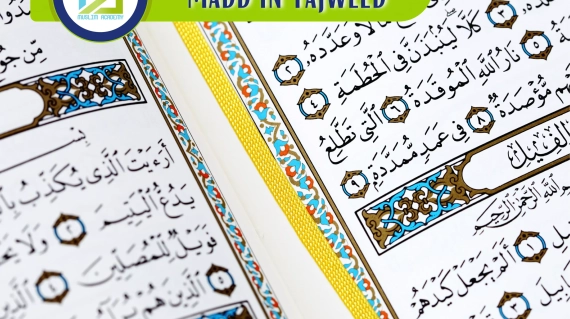 MUSLIM ACADEMY
MADD IN TAJWEED
مَالًا وَعَدَّدَهُۥ ٢
٣ كَلَّا لَيُنۢبَذَنَّ فِى ٱلْحُطَمَةِ ٤
٥ نَارُ ٱللَّهِ ٱلْمُوقَدَةُ ٦ ٱلَّتِى تَطَّلِعُ
مُّؤْصَدَةٌ ٨ فِى عَمَدٍ مُّمَدَّدَةٍۭ ٩
ٱلْفِيل
ٱللَّهِ ٱلرَّحْمَٰنِ ٱلرَّحِيمِ
١ أَلَمْ يَجْعَلْ كَيْدَهُمْ
٣
مِّن
أَرَءَيْتَ ٱلَّذِى يُكَذِّبُ
يَدُعُّ ٱلْيَتِيمَ ٢ وَلَا
فَوَيْلٌ لِّلْمُصَلِّينَ ٤
٥ ٱلَّذِينَ هُمْ